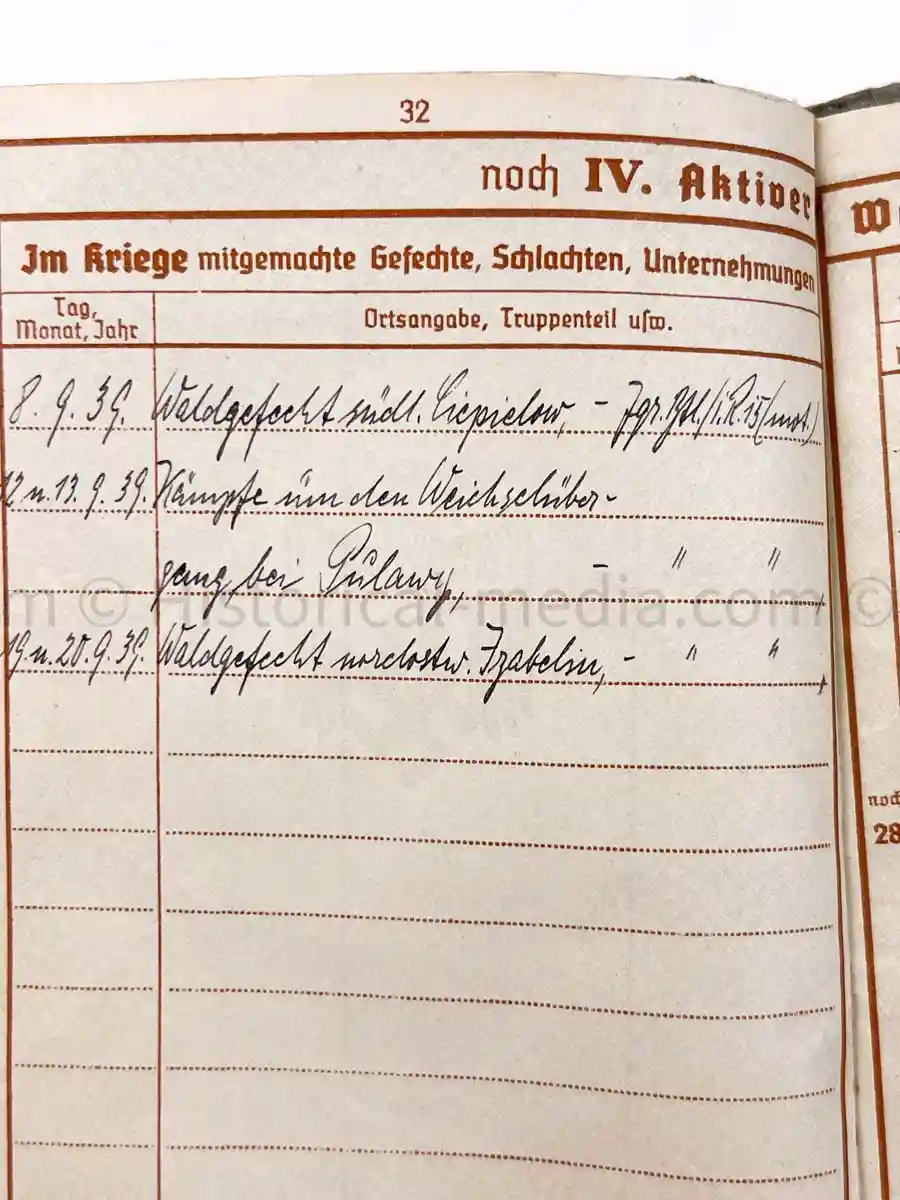 32
noch IV. Aktiver
W
Im Kriege mitgemachte Gefechte, Schlachten, Unternehmungen
Tag,
Monat, Jahr
Ortsangabe, Truppenteil usw.
8. 9. 39. Waldgefecht südl. Ciepielow, - /I.R.15(mot.)
12 u. 13. 9. 39. Kämpfe um den Weichselüber-
gang bei Pulawy, - " "
19. u. 20. 9. 39. Waldgefecht nordostw. Izabelin, - " "
m © Historical-media.com ©
noch
28